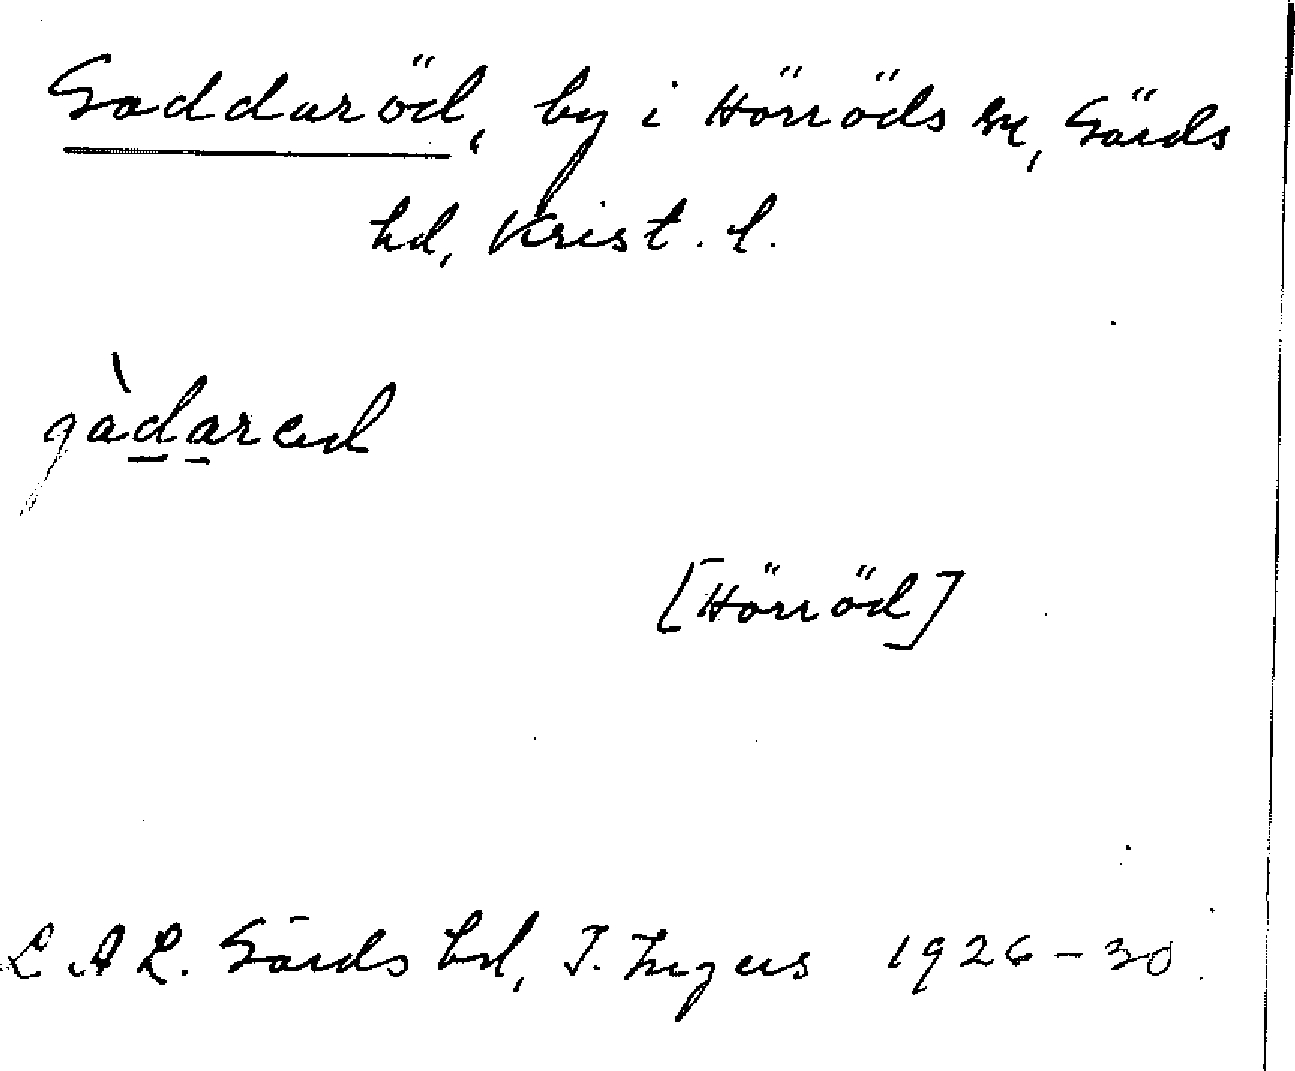 Gaddaröd, by i Hörröds sn, Gärds
hd, Krist. l.
gàdarəd
[Hörröd]
L A L. Gärds hd, I. Ingers 1926-30.